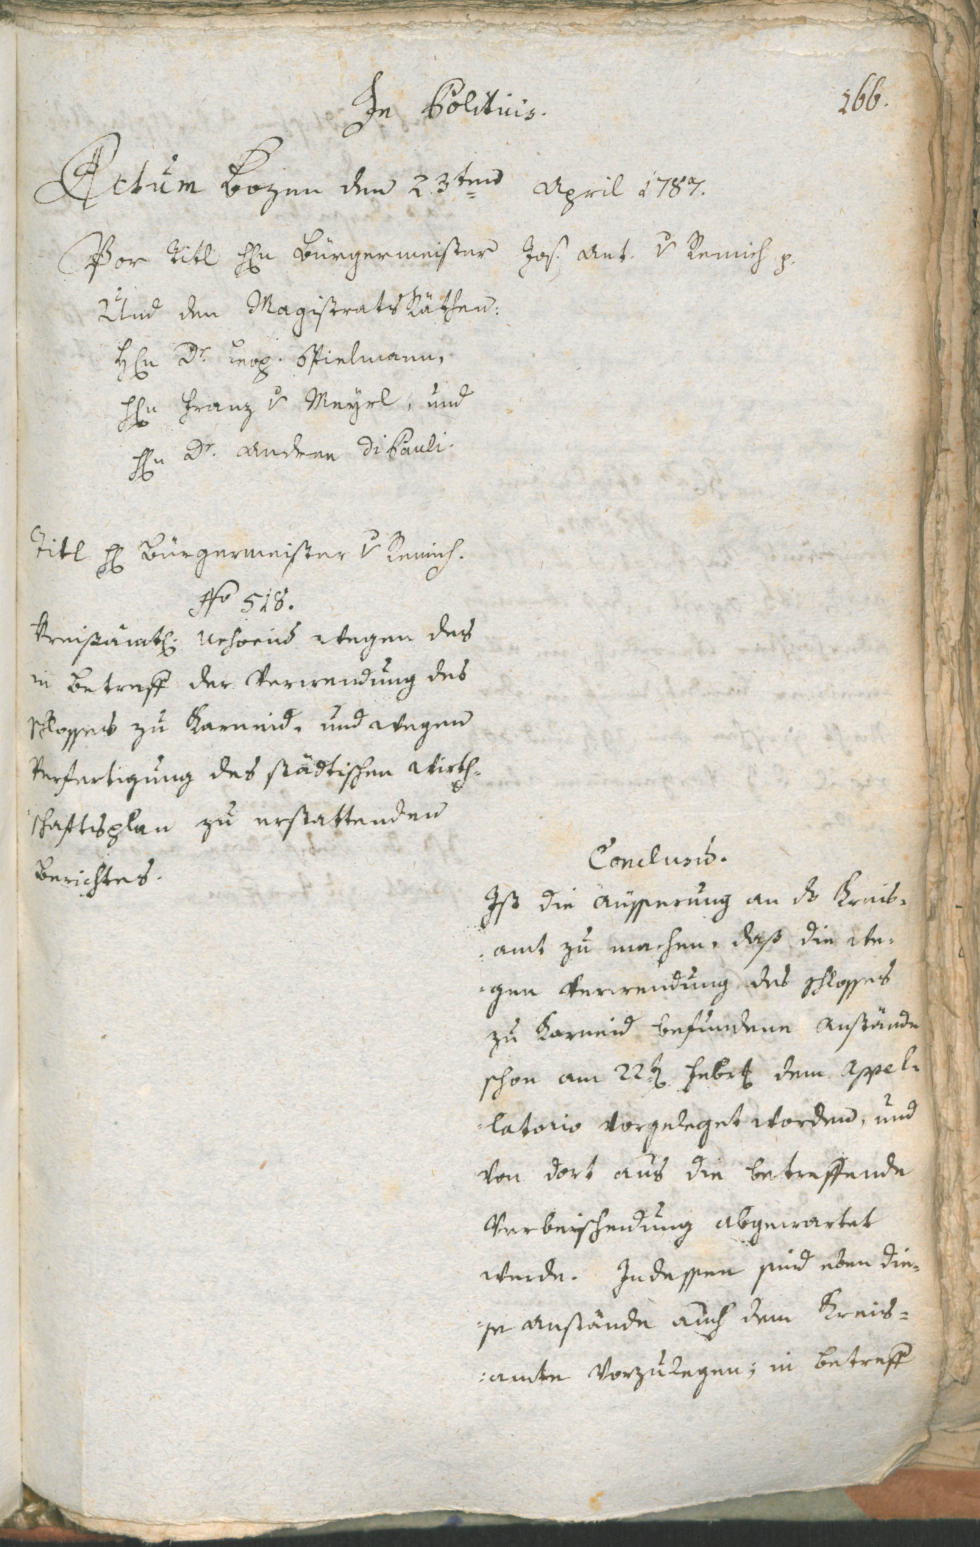 In Politicis.
166.
Actum Bozen den 23ten April 1787.
Vor Titl Hrn Bürgermeister Jos. Ant. v Remich p.
Und den Magistrats Räthen:
Hrn Dr. Leop. Spielmann,
Hrn Franz v Meÿrl, und
Hrn Dr. Andree di Pauli.
Titl Hr Bürgermeister v Remich.
No 518.
Kreisämtl. wegen des
in Betreff der Verwendung des
Schlosses zu Karneid, und wegen
Verfertigung des städtischen Wirth-
schaftsplan zu erstattenden
Berichtes.
Conclusum.
Ist die Äusserung an das Kreis-
amt zu machen, daß die we-
gen Verwendung des Schlosses
zu Karneid befundene Anstände
schon am 22t Febr dem Appel-
latorio vorgeleget worden, und
von dort aus die betreffende
Verbescheidung abgewartet
werde. Indessen sind eben die-
se Anstände auch dem Kreis-
amte vorzulegen; in Betreff